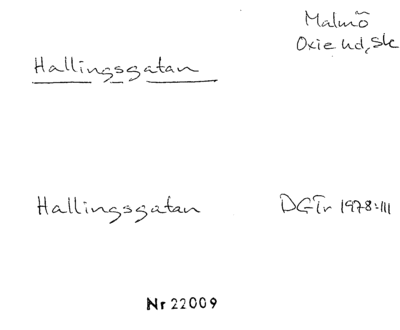 Malmö
Oxie hd, Sk
Hallingsgatan
Hallingsgatan DGTr 1978:III
Nr 22009